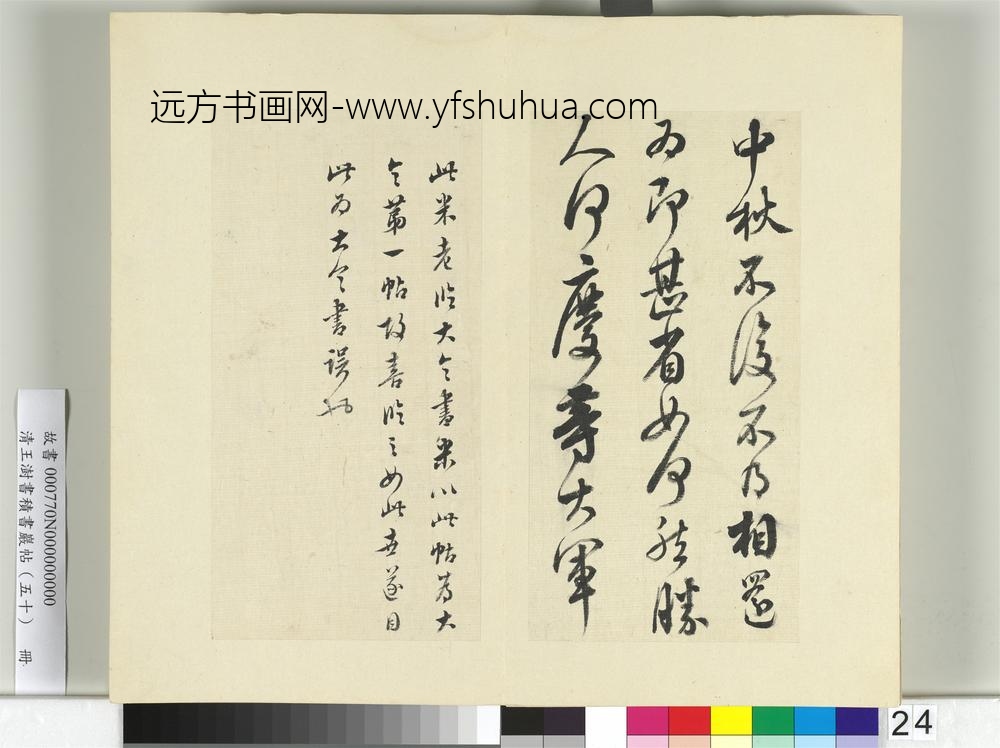 远方书画网-www.yfshuhua.com
中秋不復不得相還
為即甚省如何然勝
人何慶等大軍
此米老臨大令書米以此帖為大
令第一帖故喜臨之如此世遂目
此為大令書誤也
故書 000770N000000000
清王澍書積書巖帖（五十） 冊
24